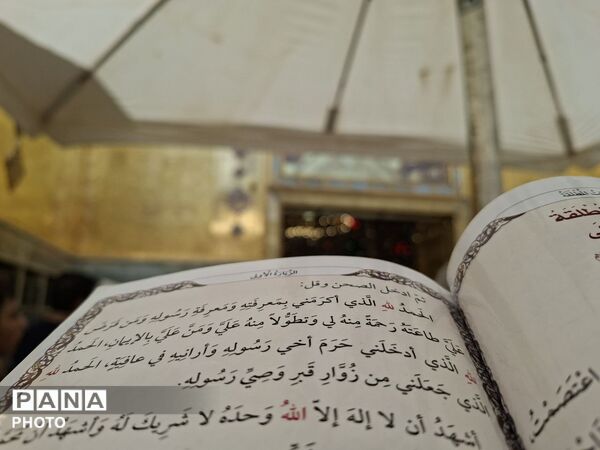 الزيارة الأولى
ثُمَّ ادخل الصحن وقل:
الحَمدُ للهِ الَّذي أكرَمَني بِمَعرِفَتِهِ وَمَعرِفَةِ رَسُولِهِ وَمَن فَرَضَ
عَلَيَّ طاعَتَهُ رَحمَةً مِنهُ لي وَتَطَوُّلاً مِنهُ عَلَيَّ وَمَنَّ عَلَيَّ بِالإيمانِ، الحَمدُ
للهِ الَّذي أدخَلَني حَرَمَ أخي رَسُولِهِ وَأرانِيهِ في عافِيَةٍ، الحَمدُ للهِ
الَّذي جَعَلَني مِن زُوَّارِ قَبرِ وَصِيِّ رَسُولِهِ.
أشهَدُ أن لا إلهَ إلاَّ اللهُ وَحدَهُ لا شَرِيكَ لَهُ وَأشهَدُ أنَّ
المُطلَقَة
اعْتَصَمْتُ
PANA
PHOTO